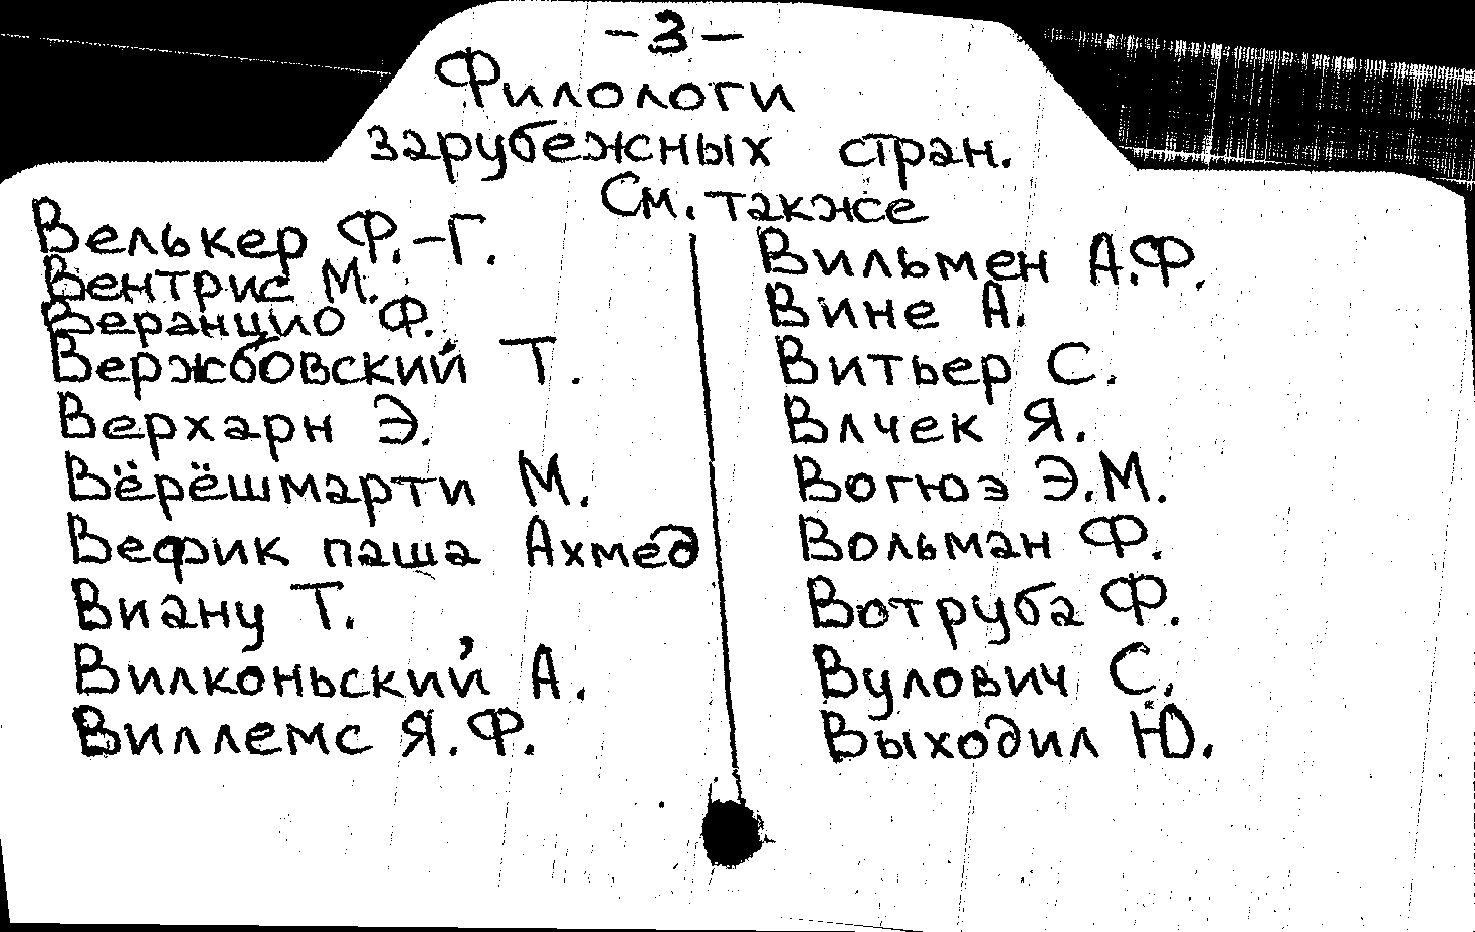 -3-
Филологи
зарубежных стран.
См. также
Велькер Ф.-Г.
Вентрис М.
Веранцио Ф.
Вержбовский Т.
Верхарн Э.
Вёрёшмарти М.
Вефик паша Ахмед
Виану Т.
Вилконьский А.
Виллемс Я.Ф.
Вильмен А.Ф.
Вине А.
Витьер С.
Влчек Я.
Вогюэ Э.М.
Вольман Ф.
Вотруба Ф.
Вулович С.
Выходил Ю.